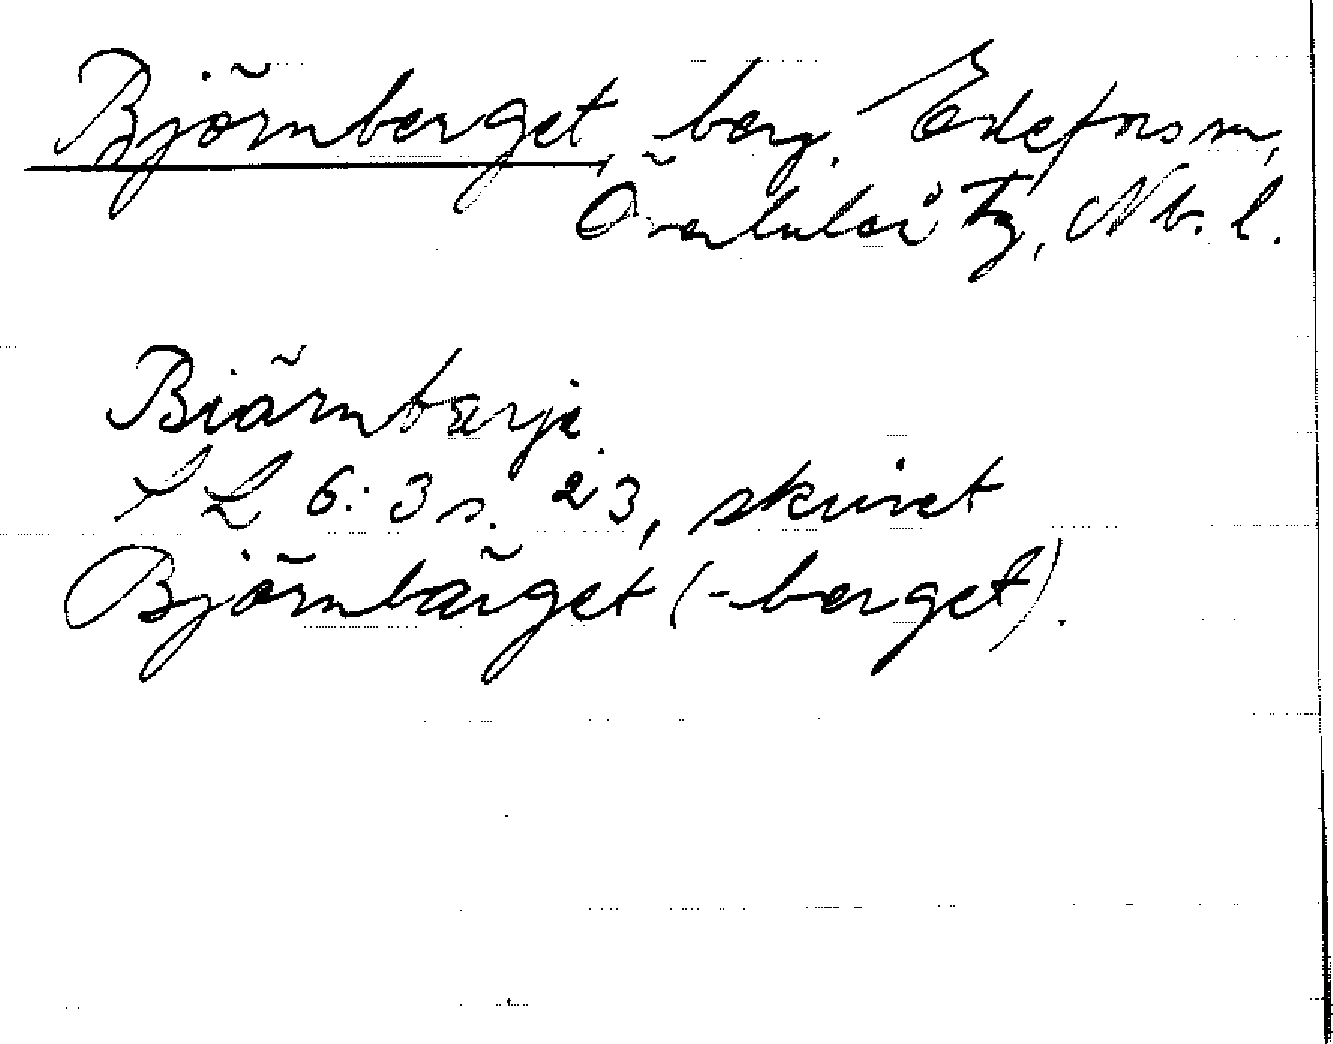 Björnberget, berg, Edefors sn,
Överluleå tg, Nb. l.
Biärnbärje
SL 6:3 s. 23, skrivet
Björnbärget (-berget).